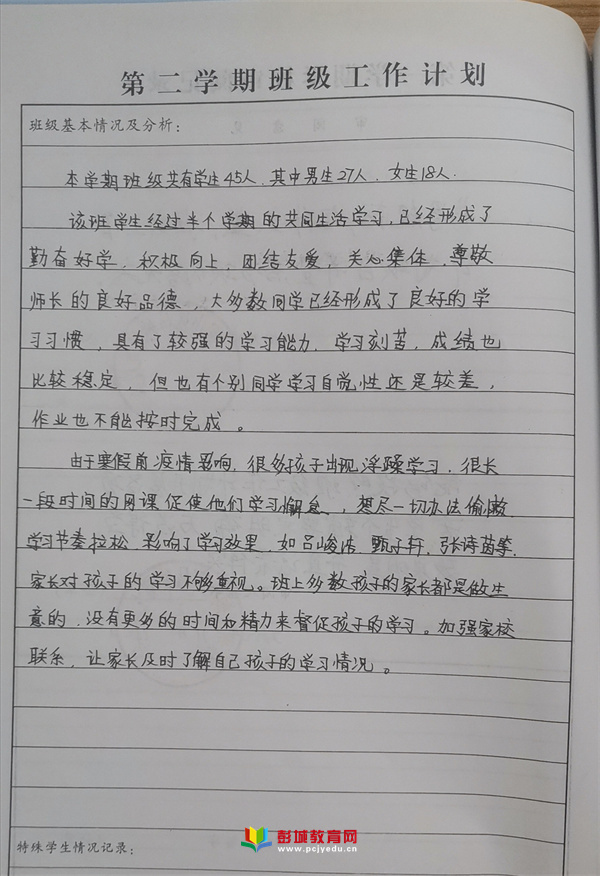 第二学期班级工作计划
班级基本情况及分析：
本学期班级共有学生45人，其中男生27人，女生18人．
该班学生经过半个学期的共同生活学习，已经形成了
勤奋好学，积极向上，团结友爱，关心集体，尊敬
师长的良好品德，大多数同学已经形成了良好的学
习习惯，具有了较强的学习能力，学习刻苦，成绩也
比较稳定，但也有个别同学学习自觉性还是较差，
作业也不能按时完成。
由于寒假前疫情影响，很多孩子出现浮躁学习，很长
一段时间的网课促使他们学习懈怠，想尽一切办法偷懒，
学习节奏拉松，影响了学习效果，如吕峻浩，甄子轩，张诗茵等，
家长对孩子的学习不够重视。班上多数孩子的家长都是做生
意的，没有更多的时间和精力来督促孩子的学习。加强家校
联系，让家长及时了解自己孩子的学习情况。
特殊学生情况记录：
彭城教育网
www.pcjyedu.cn